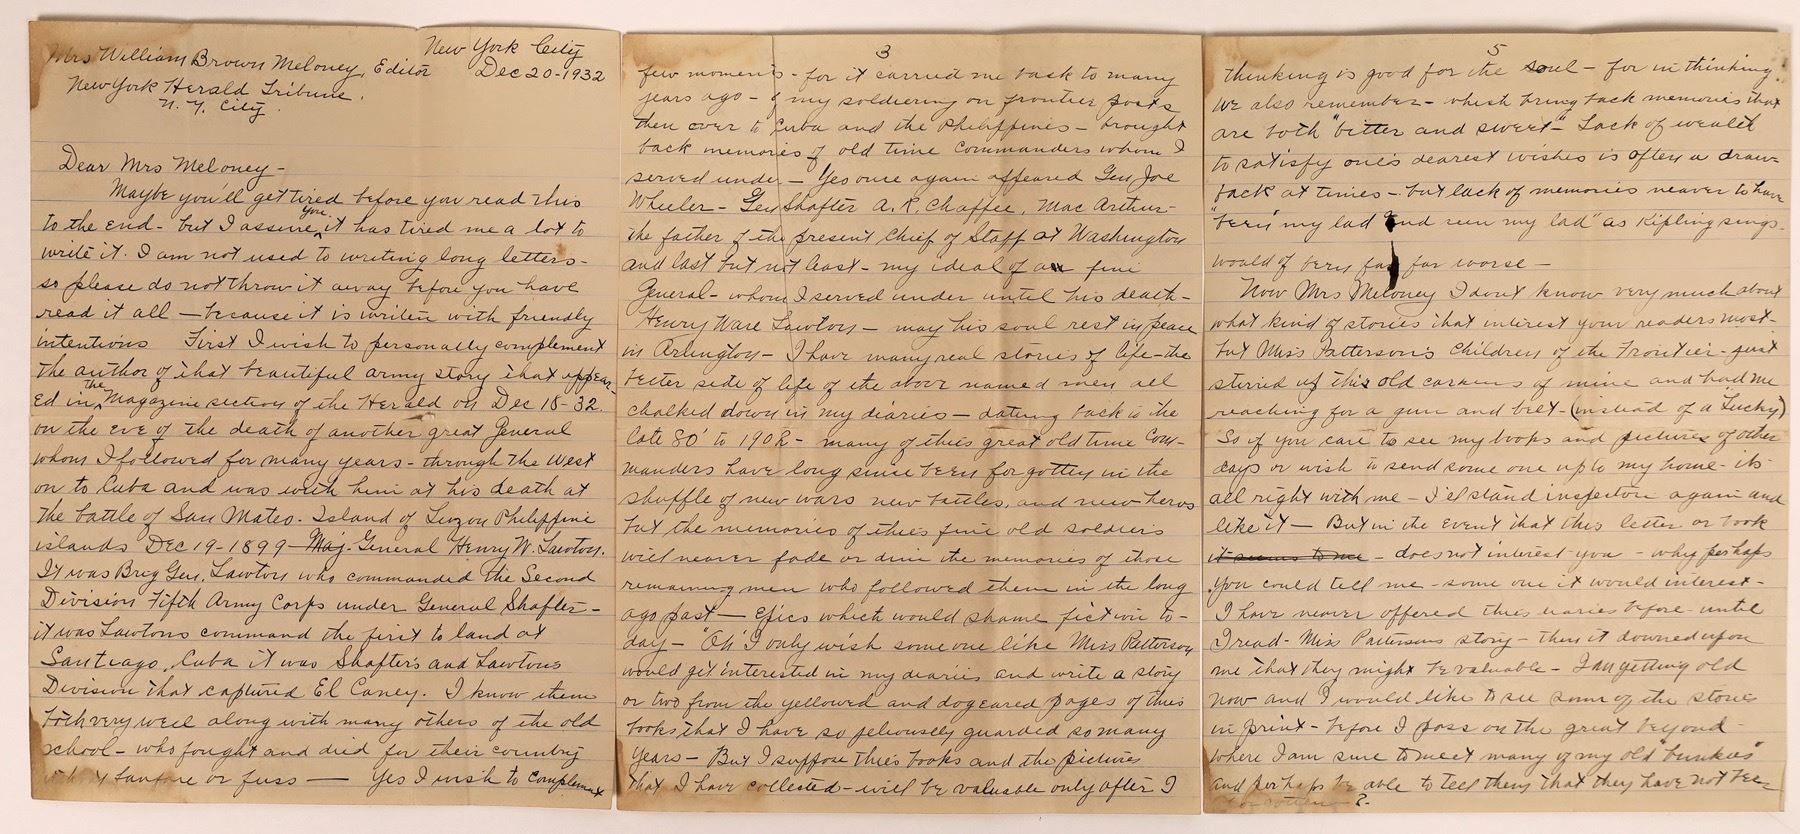 New York City
Mrs William Brown Meloney, Editor Dec 20-1932
New York Herald Tribune.
N.Y. City.
Dear Mrs Meloney-
Maybe you'll get tired before you read this
to the end- but I assure you it has tired me a lot to
write it. I am not used to writing long letters-
so please do not throw it away before you have
read it all - because it is writen with friendly
intentions First I wish to personally complement
the author of that beautiful army story that appear-
Ed in the Magazine section of the Herald on Dec 18-32.
on the Eve of the death of another great General
whom I followed for many years- through the West
on to Cuba and was with him at his death at
the battle of San Mateo. Island of Luzon Philippine
islands Dec 19-1899- Maj. General Henry W. Lawton.
It was Brig Gen. Lawton who commanded the Second
Division Fifth Army Corps under General Shafter-
it was Lawtons command the first to land at
Santiago, Cuba it was Shafter's and Lawtons
Division that captured El Caney. I know them
both very well along with many others of the old
school- who fought and died for their country
fanfare or fuss - Yes I wish to complement
3
few moments - for it carried me back to many
years ago - & my soldiering on frontier posts
then over to Cuba and the Philippines - brought
back memories of old time commanders whom I
served under - Yes once again appeared Gen Joe
Wheeler- Gen Shafter A. R. Chaffee, MacArthur-
the father of the present Chief of Staff at Washington
and last but not least- my ideal of a fine
General- whom I served under until his death-
Henry Ware Lawton - may his soul rest in peace
in Arlington - I have many real stories of life - the
better side of life of the above named men all
chalked down in my diaries - dating back to the
late 80' to 1902 - many of thies great old time Com-
manders have long since been forgotten in the
shuffle of new wars new battles, and new heros
but the memories of thies fine old soldiers
will never fade or dim the memories of those
remaining men who followed them in the long
ago past - Epics which would shame fiction to-
day - "Oh" I only wish some one like Miss Patterson
would get interested in my diaries and write a story
or two from the yellowed and dogeared pages of thies
books that I have so jeliously guarded so many
years - But I suppose thies books and the pictures
that I have collected - will be valuable only after I
5
thinking is good for the soul - for in thinking
we also remember - which bring back memories that
are both "bitter and sweet" - Lack of wealth
to satisfy one's dearest wishes is often a draw-
back at times - but lack of memories neaver to have
"been my lad and seen my lad" as Kipling sings-
would of been far far worse -
Now Mrs Meloney I don't know very much about
what kind of stories that interest your readers most-
but Miss Patterson's Children of the Frontier- just
stirred up this old carcass of mine and had me
reaching for a gun and belt - (instead of a Lucky)
So if you care to see my books and pictures of other
days or wish to send some one up to my home- its-
all right with me - I'll stand inspection again and
like it - But in the event that this letter or book
it seems to me - does not interest you - why perhaps
you could tell me - some one it would interest-
I have neaver offered thies diaries before - until
I read - Miss Pattersons story - then it downed upon
me that they might be valuable - I am getting old
now and I would like to see some of the stories
in print - before I pass on the great beyond -
where I am sure to meet many of my old "bunkies"
and perhaps be able to tell them that they have not bee-
?